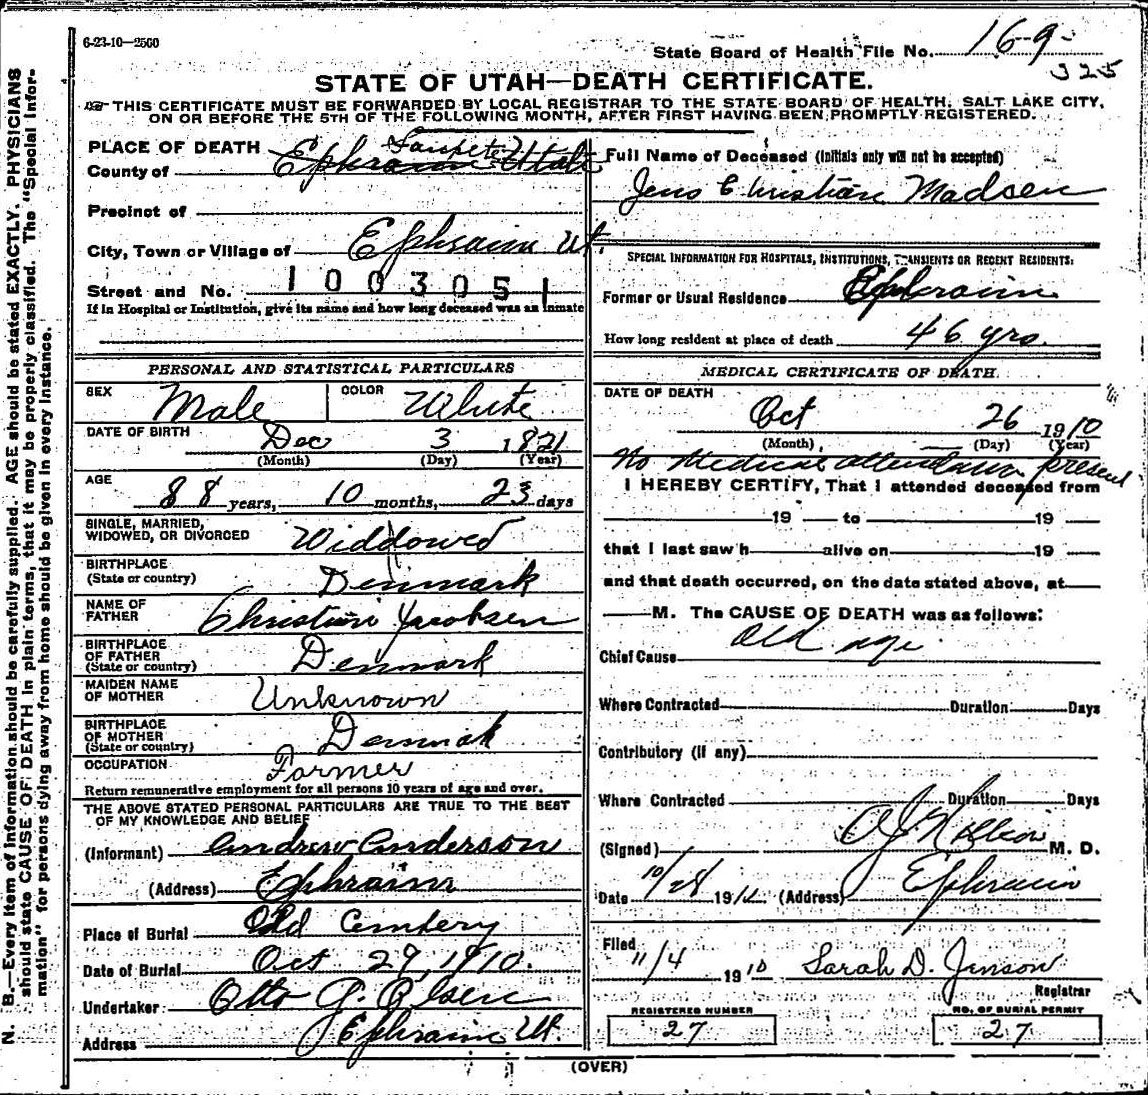 6-23-10—2500
State Board of Health File No. 16-9-
325
STATE OF UTAH—DEATH CERTIFICATE.
THIS CERTIFICATE MUST BE FORWARDED BY LOCAL REGISTRAR TO THE STATE BOARD OF HEALTH, SALT LAKE CITY,
ON OR BEFORE THE 5TH OF THE FOLLOWING MONTH, AFTER FIRST HAVING BEEN PROMPTLY REGISTERED.
N. B.—Every item of information should be carefully supplied. AGE should be stated EXACTLY. PHYSICIANS
should state CAUSE OF DEATH in plain terms, that it may be properly classified. The "Special Infor-
mation" for persons dying away from home should be given in every instance.
PLACE OF DEATH
Sanpete
County of Ephraim Utah
Precinct of
City, Town or Village of Ephraim Ut.
Street and No. 1003051
If in Hospital or Institution, give its name and how long deceased was an inmate
PERSONAL AND STATISTICAL PARTICULARS
SEX Male COLOR White
DATE OF BIRTH Dec 3 1821
(Month) (Day) (Year)
AGE 88 years, 10 months, 23 days
SINGLE, MARRIED,
WIDOWED, OR DIVORCED Widdowed
BIRTHPLACE
(State or country) Denmark
NAME OF
FATHER Christian Jacobsen
BIRTHPLACE
OF FATHER
(State or country) Denmark
MAIDEN NAME
OF MOTHER Unknown
BIRTHPLACE
OF MOTHER
(State or country) Denmak
OCCUPATION Farmer
Return remunerative employment for all persons 10 years of age and over.
THE ABOVE STATED PERSONAL PARTICULARS ARE TRUE TO THE BEST
OF MY KNOWLEDGE AND BELIEF
(Informant) Andrew Anderson
(Address) Ephraim
Place of Burial Old Cemtery
Date of Burial Oct 29, 1910.
Undertaker Otto J. Olsen
Address Ephraim Ut.
Full Name of Deceased (Initials only will not be accepted)
Jens Christian Madsen
SPECIAL INFORMATION FOR HOSPITALS, INSTITUTIONS, TRANSIENTS OR RECENT RESIDENTS:
Former or Usual Residence Ephraim
How long resident at place of death 46 yrs.
MEDICAL CERTIFICATE OF DEATH
DATE OF DEATH
Oct 26 1910
(Month) (Day) (Year)
No Medical attendance present
I HEREBY CERTIFY, That I attended deceased from
19 to 19
that I last saw h alive on 19
and that death occurred, on the date stated above, at
M. The CAUSE OF DEATH was as follows:
Chief Cause Old age
Where Contracted Duration Days
Contributory (if any)
Where Contracted Duration Days
(Signed) M. D.
Date 10/28 19 (Address) Ephraim
Filed 11/4 1910 Sarah D. Jenson
Registrar
REGISTERED NUMBER
27
NO. OF BURIAL PERMIT
27
(OVER)